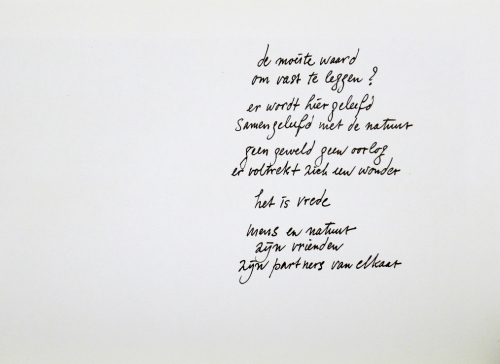 de moeite waard
om vast te leggen?
er wordt hier geleefd
samengeleefd met de natuur
geen geweld geen oorlog
er voltrekt zich een wonder
het is vrede
mens en natuur
zijn vrienden
zijn partners van elkaar